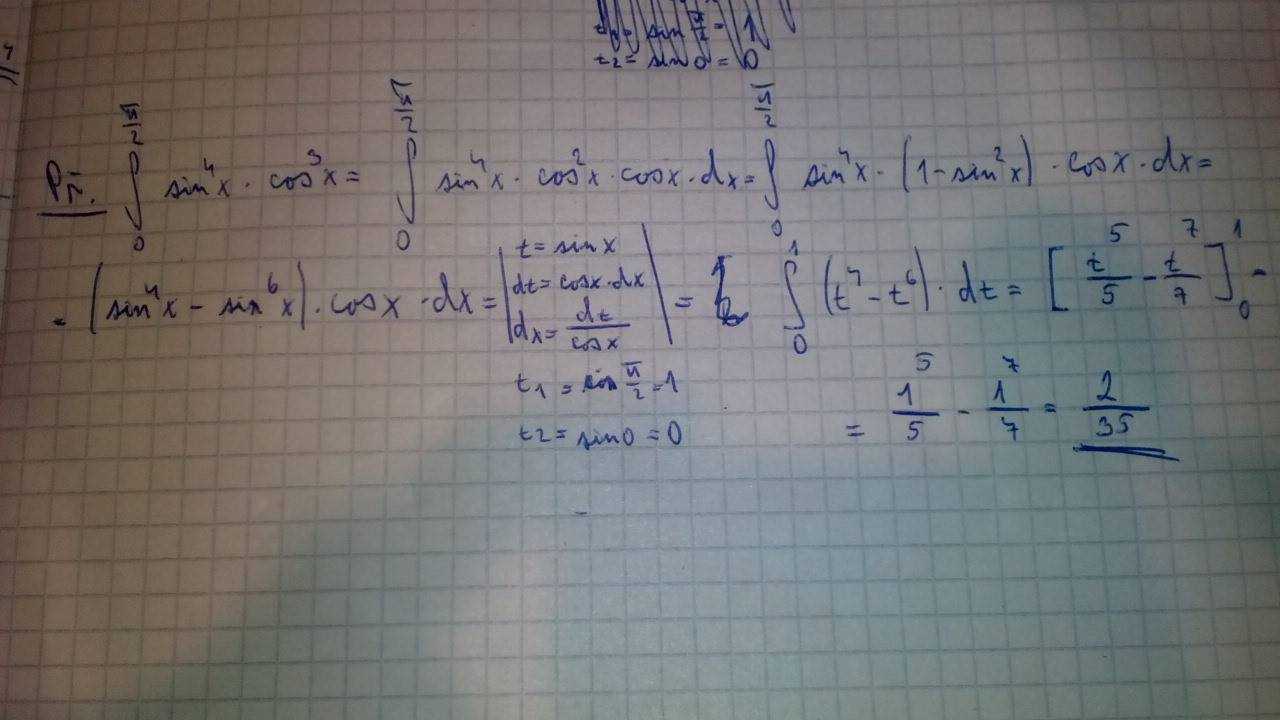 t₂ = sin 0 = 0
Př. ∫₀^(π/2) sin⁴x · cos³x = ∫₀^(π/2) sin⁴x · cos²x · cosx · dx = ∫₀^(π/2) sin⁴x · (1 - sin²x) · cosx · dx =
= (sin⁴x - sin⁶x) · cosx · dx = | t = sin x ; dt = cosx · dx ; dx = dt/cosx | = ∫₀¹ (t⁴ - t⁶) · dt = [t⁵/5 - t⁷/7]₀¹ =
t₁ = sin π/2 = 1
t₂ = sin 0 = 0
= 1⁵/5 - 1⁷/7 = 2/35